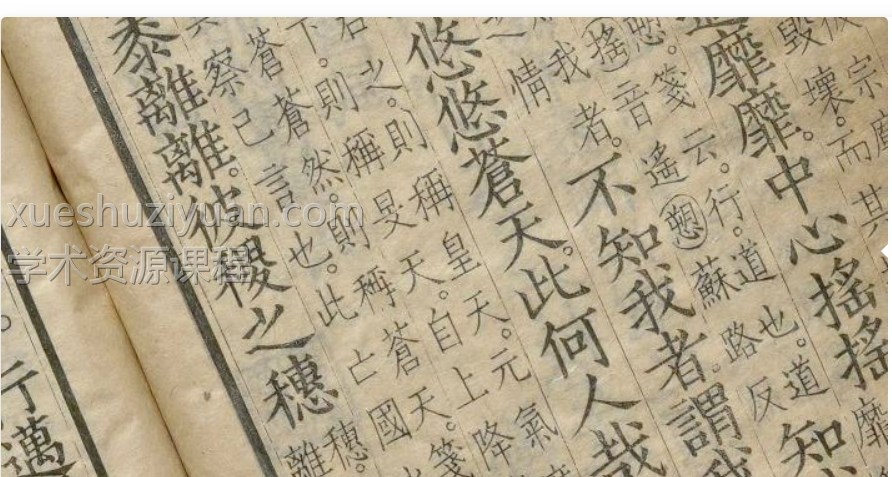 宗
毀壞。而其
靡靡。中心搖搖
靡
愬。箋云。行。道也。道
搖音遥愬蘇路反
知
我者。
情
不知我者。謂我
悠悠蒼天。此何人哉
之。則稱皇天。元氣
下。則稱旻天。自上降
蒼蒼然。則稱蒼天。箋
察己言也。此亡國
黍離離。彼稷之穗
穗。
離
行邁
xueshuziyuan.com
学术资源课程